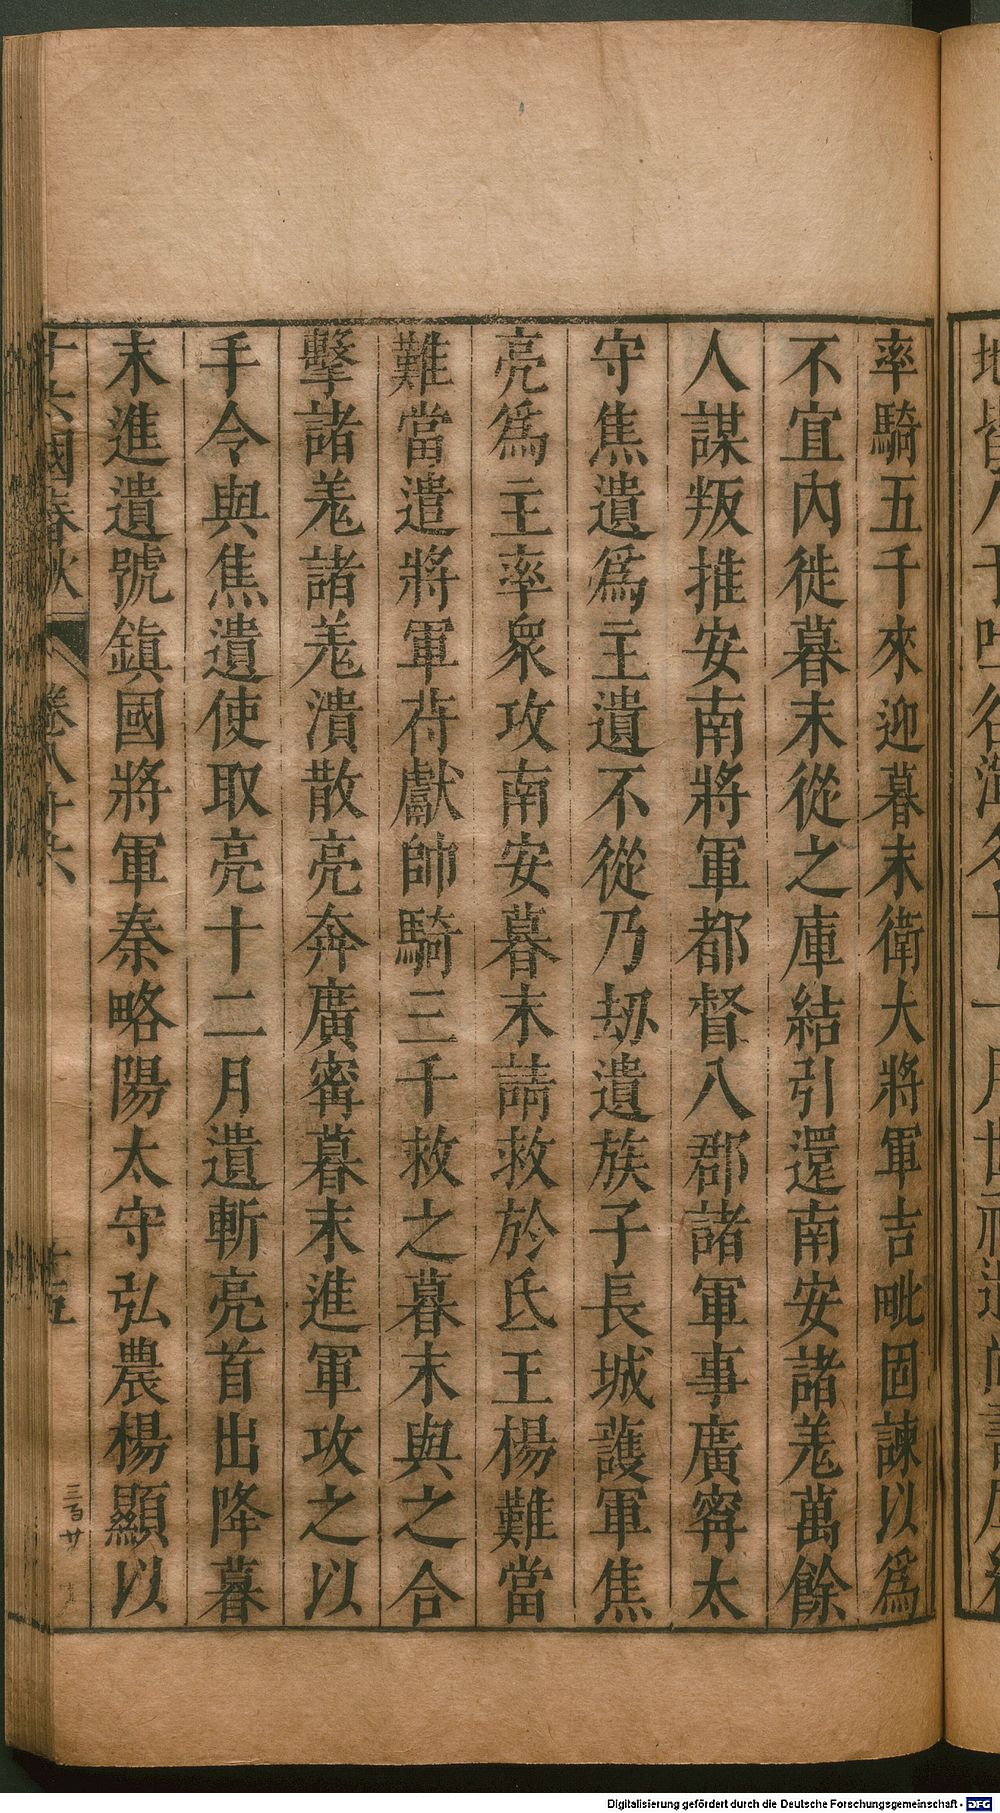 率騎五千來迎暮末衛大將軍吉毗固諫以爲
不宜內徙暮末從之庫結引還南安諸羌萬餘
人謀叛推安南將軍都督八郡諸軍事廣寗太
守焦遺爲主遺不從乃刼遺族子長城護軍焦
亮爲主率衆攻南安暮末請救於氐王楊難當
難當遣將軍苻獻帥騎三千救之暮末與之合
擊諸羌諸羌潰散亮奔廣寗暮末進軍攻之以
手令與焦遺使取亮十二月遺斬亮首出降暮
末進遺號鎮國將軍秦略陽太守弘農楊顯以
十六國春秋 卷八十六 十五
三百廿
Digitalisierung gefördert durch die Deutsche Forschungsgemeinschaft - DFG